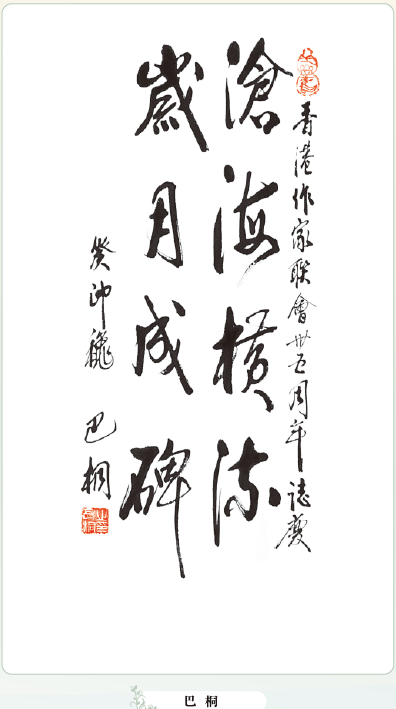 香港作家聯會卅五周年誌慶
滄海橫流
歲月成碑
癸卯龝
巴桐
巴桐